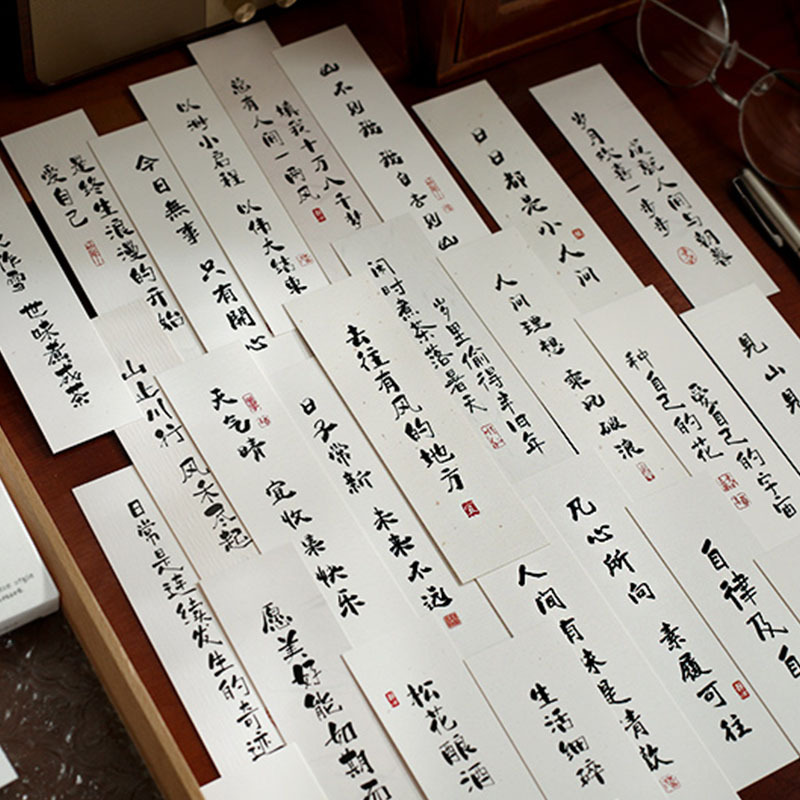 作雪 世味煮成茶
爱自己
是终生浪漫的开始
今日無事 只有開心
以渺小启程 以伟大结束
总有人间一两风
填我十万八千梦
山不见我 我自去见山
日日都是小人间
岁月欢喜一步步
人间与朝暮
山止川行 风禾尽起
天气晴 宜收集快乐
日子常新 未来不远
去往有风的地方
闲时煮茶落暮天
岁里偷得半日年
人间理想 乘风破浪
种自己的花
爱自己的宇宙
見山見
日常是连续发生的奇迹
愿美好能如期而
松花酿酒
生活细碎
人间有味是清欢
凡心所向 素履可往
自律及自